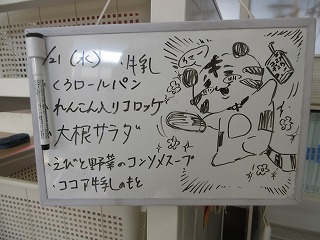 /21 (水) ・牛乳
くろロールパン
れんこん入りコロッケ
大根サラダ
・えびと野菜のコンソメスープ
・ココア牛乳のもと